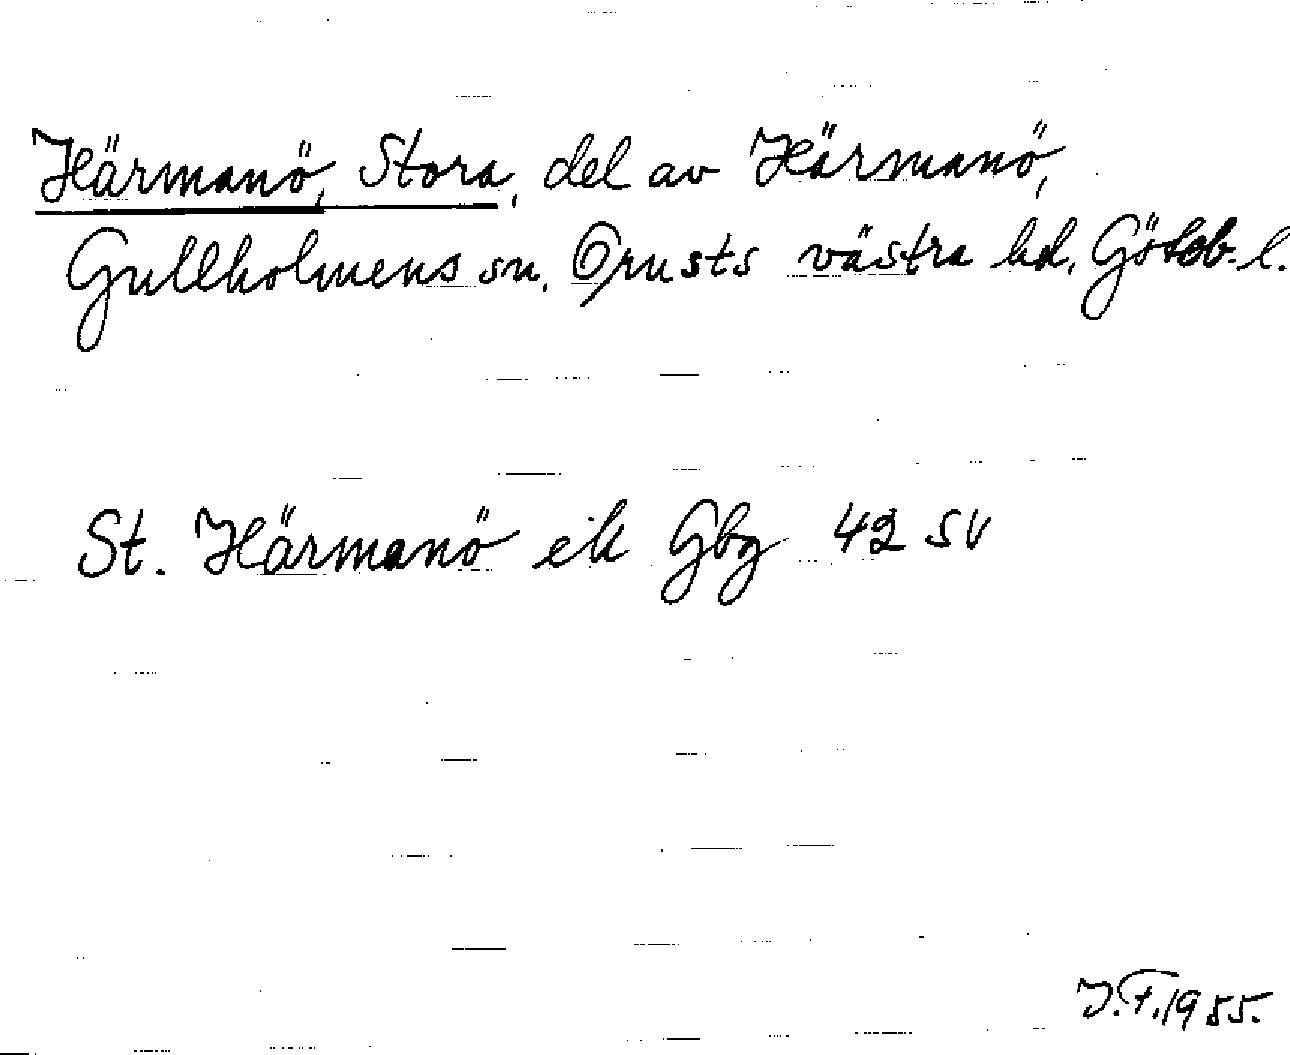 Härmanö, Stora, del av Härmanö,
Gullholmens sn. Orusts västra hd, Götebb. l.
St. Härmanö ek Gbg 42 SV
J.F. 1955.